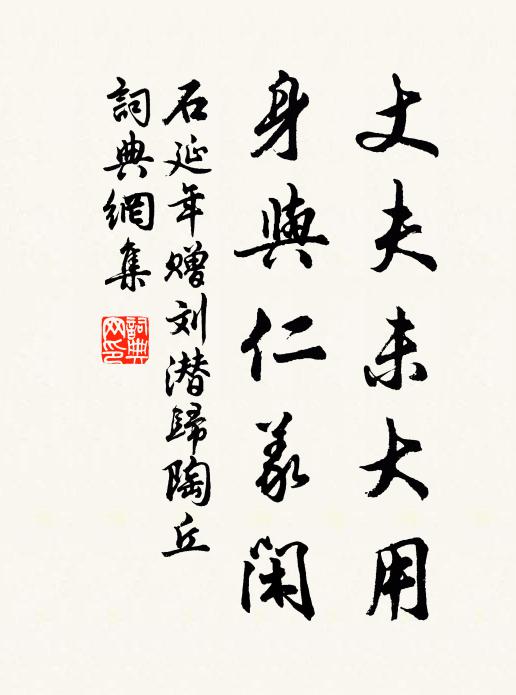 丈夫未大用
身與仁義閑
石延年赠刘潜歸陶丘
詞典網集
詞典
网印